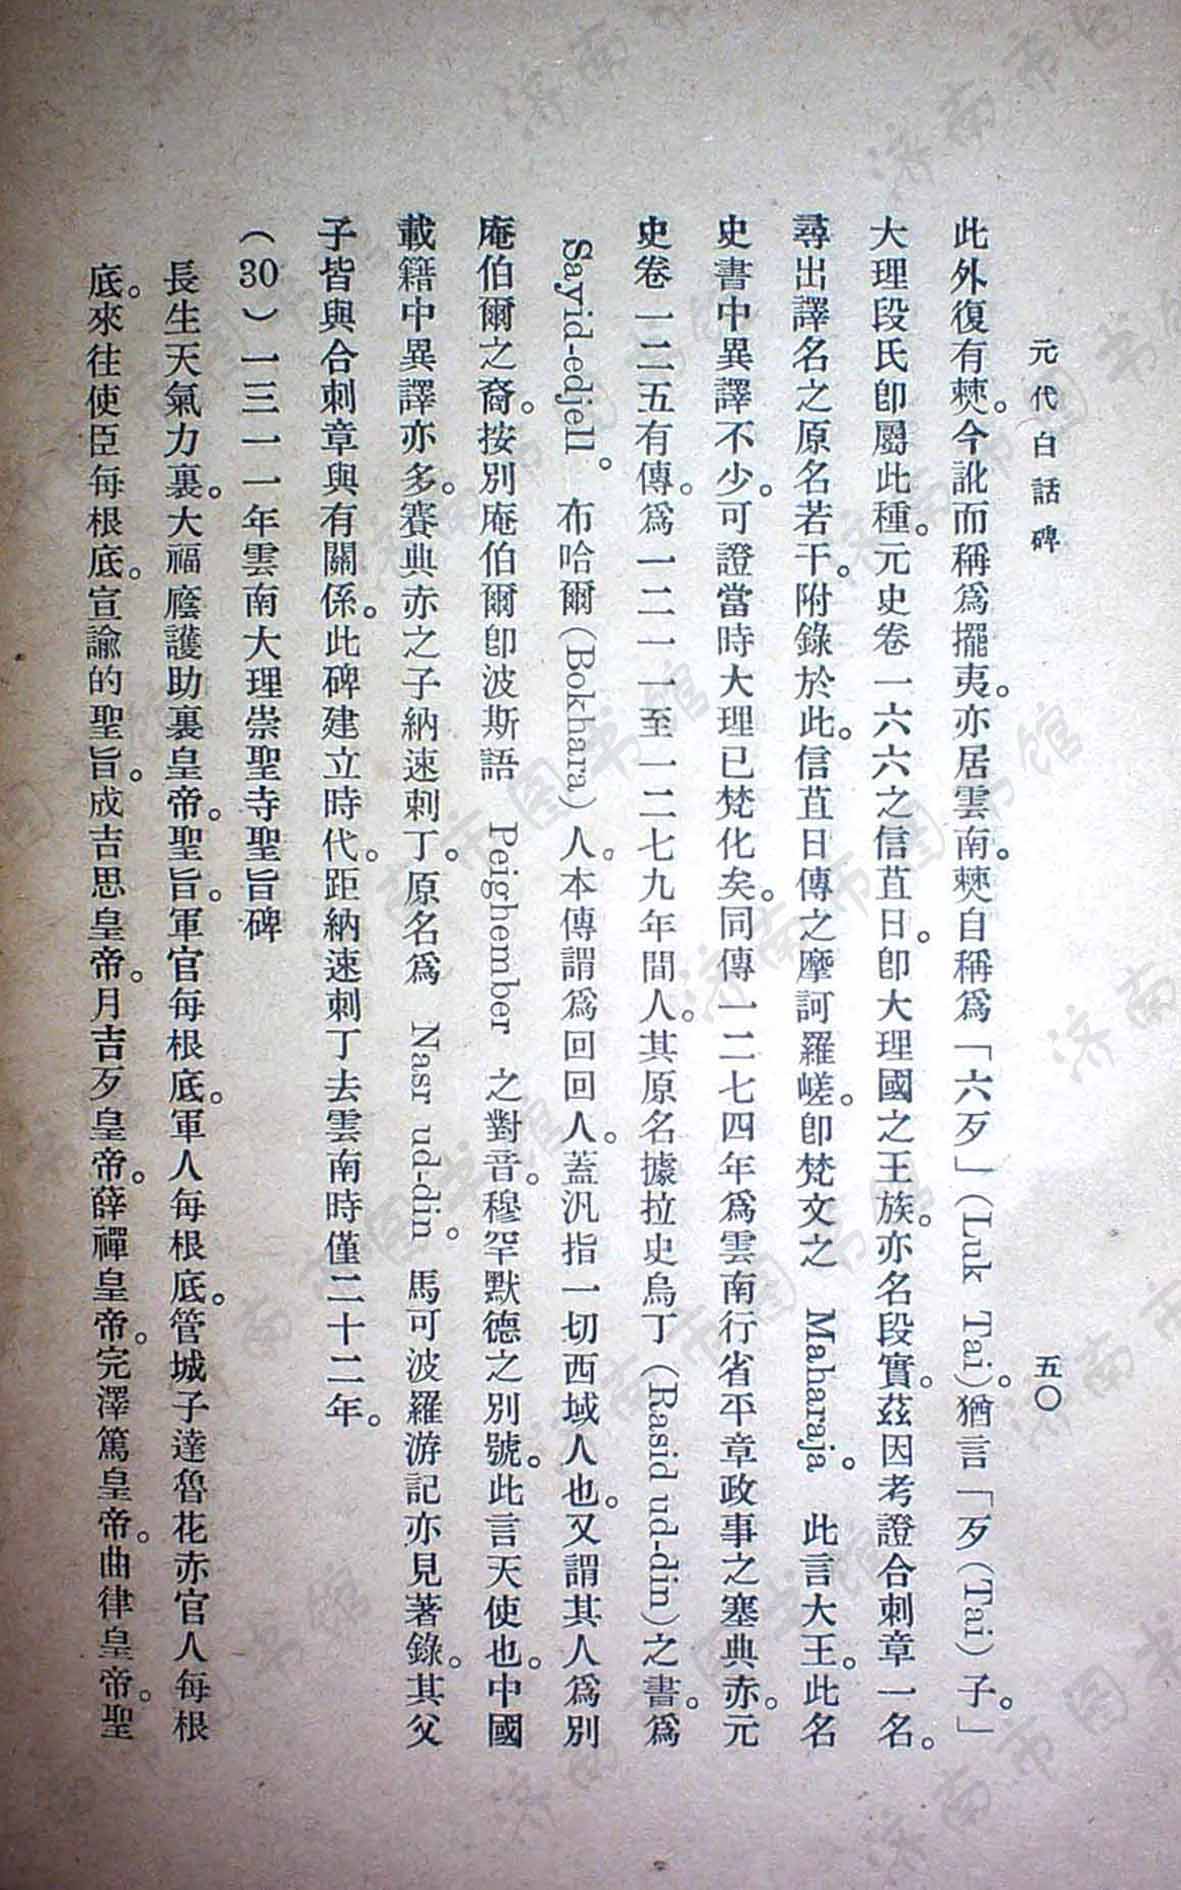 元代白話碑
五〇
此外復有僰。今訛而稱爲擺夷。亦居雲南。僰自稱爲「六歹」(Luk Tai)。猶言「歹(Tai)子。」
大理段氏卽屬此種。元史卷一六六之信苴日。卽大理國之王族。亦名段實。茲因考證合刺章一名。
尋出譯名之原名若干。附錄於此。信苴日傳之摩訶羅嵯。卽梵文之 Maharaja。此言大王。此名
史書中異譯不少。可證當時大理已梵化矣。同傳一二七四年爲雲南行省平章政事之塞典赤。元
史卷一二五有傳。爲一二一一至一二七九年間人。其原名據拉史烏丁(Rasid ud-din)之書。爲
Sayid-edjell。布哈爾(Bokhara)人。本傳謂爲回回人。蓋汎指一切西域人也。又謂其人爲別
庵伯爾之裔。按別庵伯爾卽波斯語 Peighember 之對音。穆罕默德之別號。此言天使也。中國
載籍中異譯亦多。賽典赤之子納速刺丁。原名爲 Nasr ud-din。馬可波羅游記亦見著錄。其父
子皆與合刺章與有關係。此碑建立時代。距納速刺丁去雲南時僅二十二年。
(30)一三一一年雲南大理崇聖寺聖旨碑
長生天氣力裏。大福廕護助裏皇帝。聖旨。軍官每根底。軍人每根底。管城子達魯花赤官人每根
底。來往使臣每根底。宣諭的聖旨。成吉思皇帝。月吉歹皇帝。薛禪皇帝。完澤篤皇帝。曲律皇帝。聖
济南市图书馆